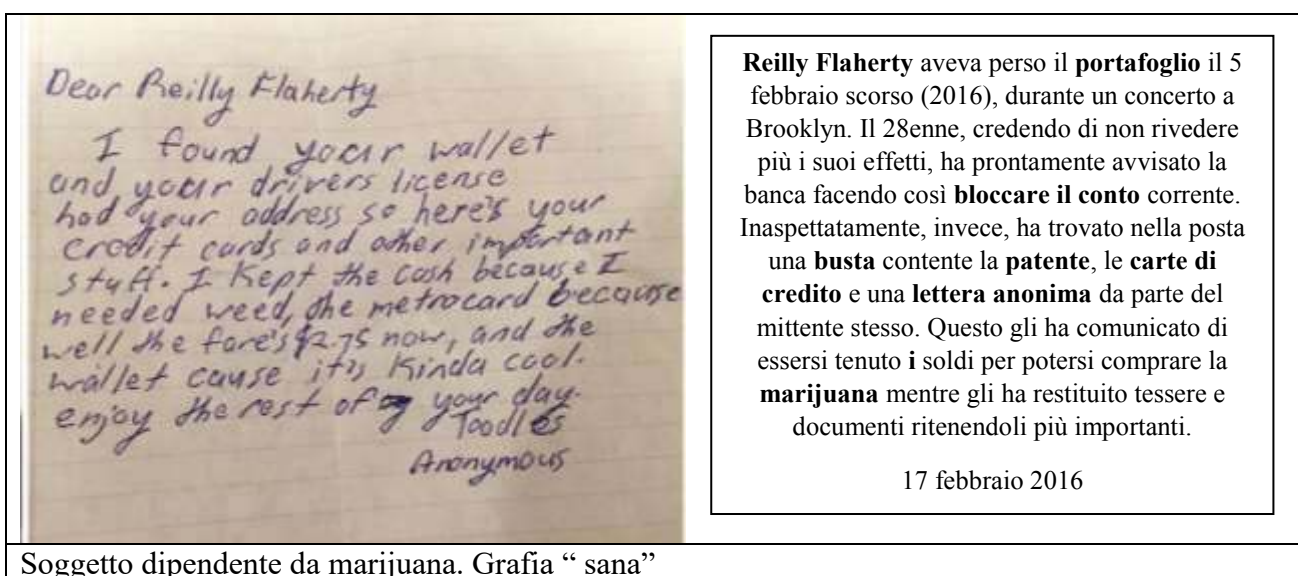 Dear Reilly Flaherty
I found your wallet
and your drivers license
had your address so here's your
credit cards and other important
stuff. I kept the cash because I
needed weed, the metrocard because
well the fare's $2.75 now, and the
wallet cause it's kinda cool.
enjoy the rest of your day.
Toodles
Anonymous
Reilly Flaherty aveva perso il portafoglio il 5
febbraio scorso (2016), durante un concerto a
Brooklyn. Il 28enne, credendo di non rivedere
più i suoi effetti, ha prontamente avvisato la
banca facendo così bloccare il conto corrente.
Inaspettatamente, invece, ha trovato nella posta
una busta contente la patente, le carte di
credito e una lettera anonima da parte del
mittente stesso. Questo gli ha comunicato di
essersi tenuto i soldi per potersi comprare la
marijuana mentre gli ha restituito tessere e
documenti ritenendoli più importanti.
17 febbraio 2016
Soggetto dipendente da marijuana. Grafia “ sana”